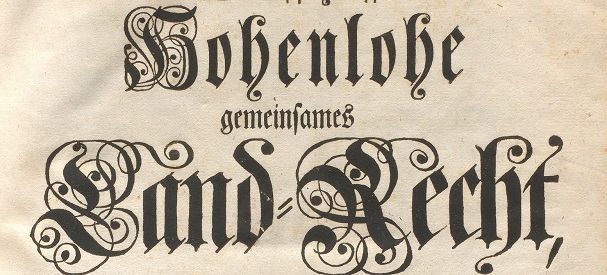 Hohenlohe
gemeinſames
Land⸗Recht,